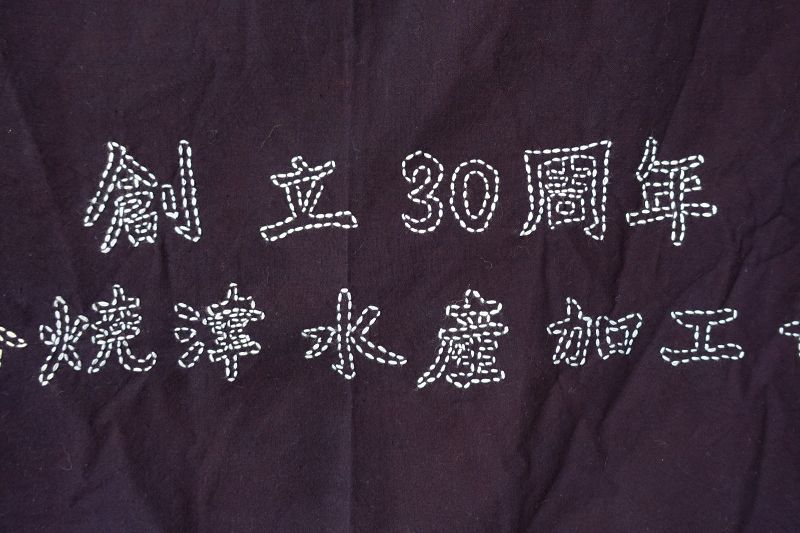 創立30周年
焼津水産加工